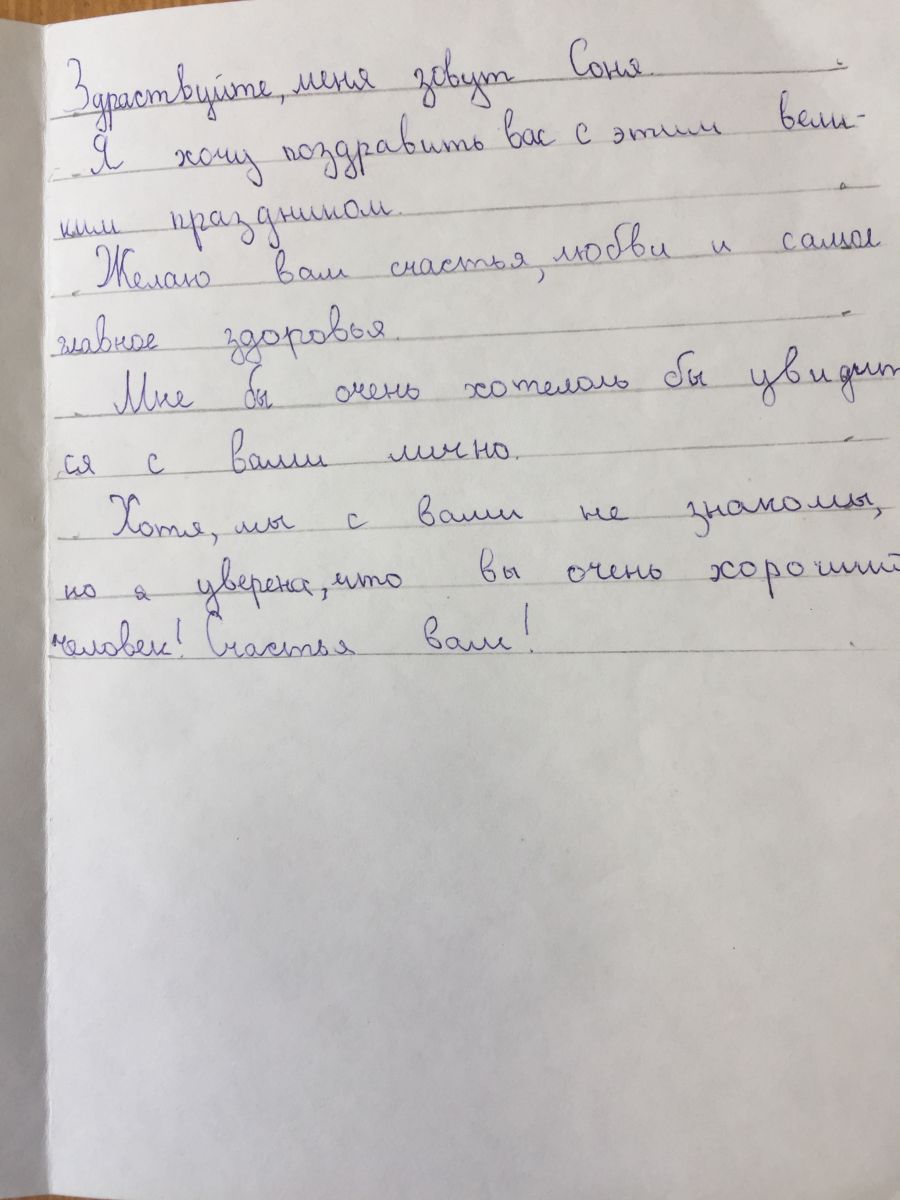 Здраствуйте, меня зовут Соня.
Я хочу поздравить вас с этим вели-
ким праздником.
Желаю вам счастья, любви и самое
главное здоровья.
Мне бы очень хотелоль бы увидит
ся с вами лично.
Хотя, мы с вами не знакомы,
но я уверена, что вы очень хороший
человек! Счастья вам!